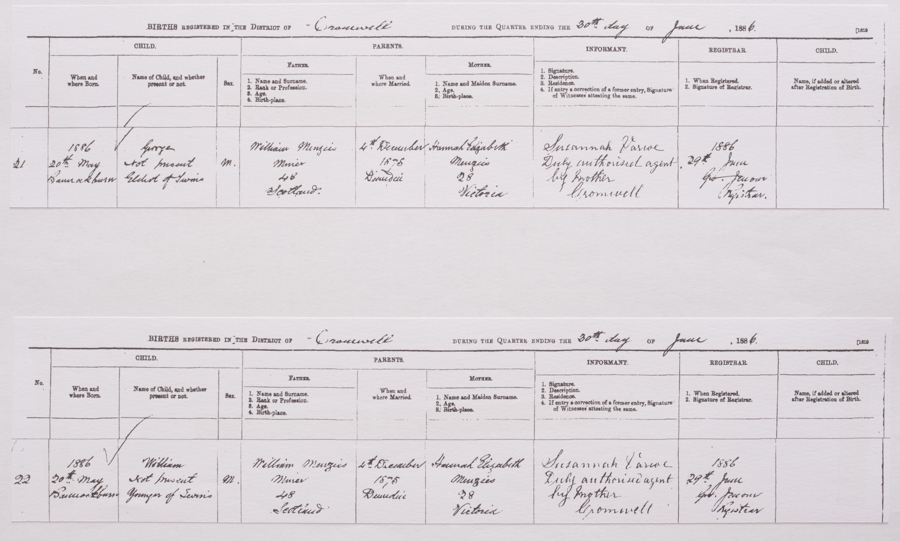 BIRTHS REGISTERED IN THE DISTRICT OF Cromwell DURING THE QUARTER ENDING THE 30th day OF June, 1886.
CHILD. PARENTS. INFORMANT. REGISTRAR. CHILD.
No. When and where Born. Name of Child, and whether present or not. Sex. FATHER. 1. Name and Surname. 2. Rank or Profession. 3. Age. 4. Birth-place. When and where Married. MOTHER. 1. Name and Maiden Surname. 2. Age. 3. Birth-place. 1. Signature. 2. Description. 3. Residence. 4. If entry a correction of a former entry, Signature of Witnesses attesting the same. 1. When Registered. 2. Signature of Registrar. Name, if added or altered after Registration of Birth.
1886 George William Menzies 4th December Hannah Elizabeth Susannah 1886
21 20th May Not Present M. Miner 1878 Menzies Duly authorised agent 29th June
Bannockburn Eldest of Twins 48 Dunedin 28 by Mother
Scotland Victoria Cromwell Registrar.
BIRTHS REGISTERED IN THE DISTRICT OF Cromwell DURING THE QUARTER ENDING THE 30th day OF June, 1886.
CHILD. PARENTS. INFORMANT. REGISTRAR. CHILD.
No. When and where Born. Name of Child, and whether present or not. Sex. FATHER. 1. Name and Surname. 2. Rank or Profession. 3. Age. 4. Birth-place. When and where Married. MOTHER. 1. Name and Maiden Surname. 2. Age. 3. Birth-place. 1. Signature. 2. Description. 3. Residence. 4. If entry a correction of a former entry, Signature of Witnesses attesting the same. 1. When Registered. 2. Signature of Registrar. Name, if added or altered after Registration of Birth.
1886 William William Menzies 4th December Hannah Elizabeth Susannah 1886
22 20th May Not Present M. Miner 1878 Menzies Duly authorised agent 29th June
Bannockburn Younger of Twins 48 Dunedin 28 by Mother
Scotland Victoria Cromwell Registrar